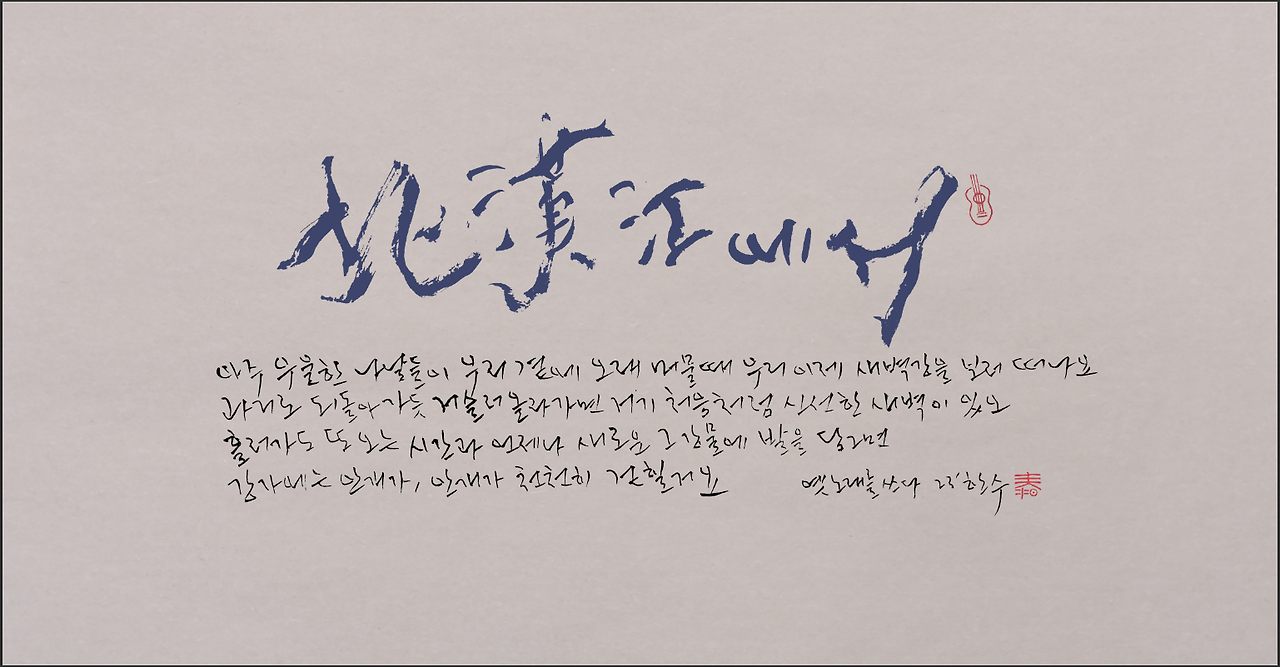 北漢江에서
아주 우울한 나날들이 우리 곁에 오래 머물때 우리 이제 새벽강을 보러 떠나요
과거로 되돌아가듯 거슬러올라가면 거기 처음처럼 신선한 새벽이 있소
흘러가도 또 오는 시간과 언제나 새로운 그 강물에 발을 담그면
강가에는 안개가, 안개가 천천히 걷힐거요
옛노래를 쓰다